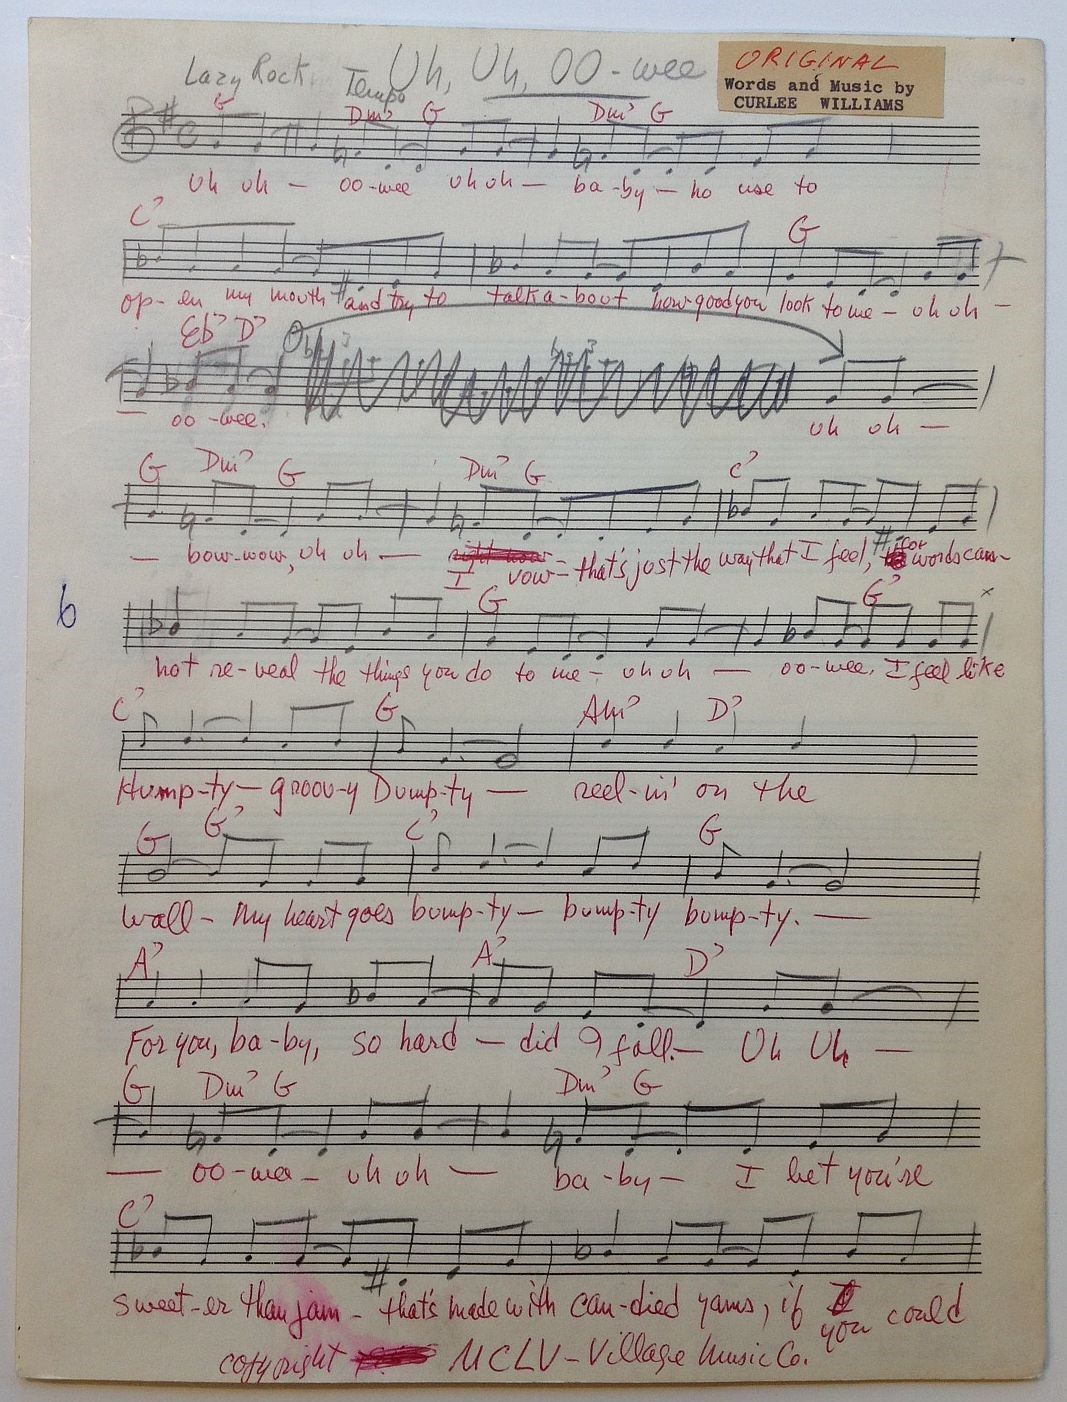 Lazy Rock Tempo Uh, Uh, OO-wee
ORIGINAL
Words and Music by
CURLEE WILLIAMS
G Dm7 G Dm7 G
Uh uh — oo-wee uh uh — ba-by — no use to
C7 G
op-en my mouth and try to talk a-bout how good you look to me — uh uh —
Eb7 D7
— oo-wee. uh uh —
G Dm7 G Dm7 G C7
— bow-wow, uh uh — right now — that's just the way that I feel, for words can-
I vow
G G7 x
6
not re-veal the things you do to me — uh uh — oo-wee, I feel like
C7 G Am7 D7
Hump-ty — groov-y Dump-ty — reel-in' on the
G G7 C7 G
wall — My heart goes bump-ty — bump-ty bump-ty. —
A7 A7 D7
For you, ba-by, so hard — did I fall. — Uh Uh, —
G Dm7 G Dm7 G
— oo-wee — uh uh — ba-by — I bet you're
C7
sweet-er than jam — that's made with can-died yams, if I could
you
copyright MCLV — Village Music Co.